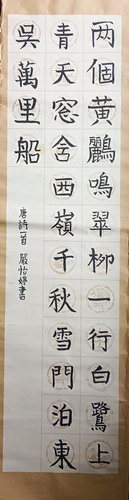 两個黃鸝鳴翠柳一行白鷺上
青天窓含西嶺千秋雪門泊東
吳萬里船
唐詩一首 嚴怡婷書